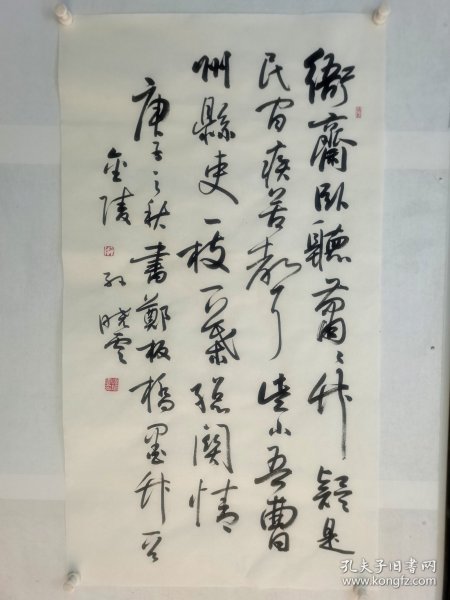 衙齋卧聽蕭〻竹疑是
民间疾苦聲些小吾曹
州縣吏一枝一葉總關情
庚子之秋書鄭板橋墨竹
金陵孙晓雲
孔夫子旧书网
www.kongfz.com